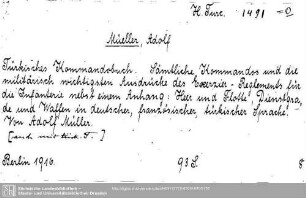 H. Turc. 1491 =0
Müller, Adolf
Türkisches Kommandobuch. Sämtliche Kommandos und die
militärisch wichtigsten Ausdrücke des Exerzier-Reglements für
die Infanterie nebst einem Anhang: "Heer und Flotte", Dienstgra,
de und Waffen in deutscher, französischer, türkischer Sprache.
Von Adolf Müller.
[auch mit türk. T.]
Berlin 1916. 93 S. 8